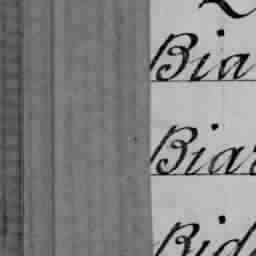 Bia
Biar
Rid